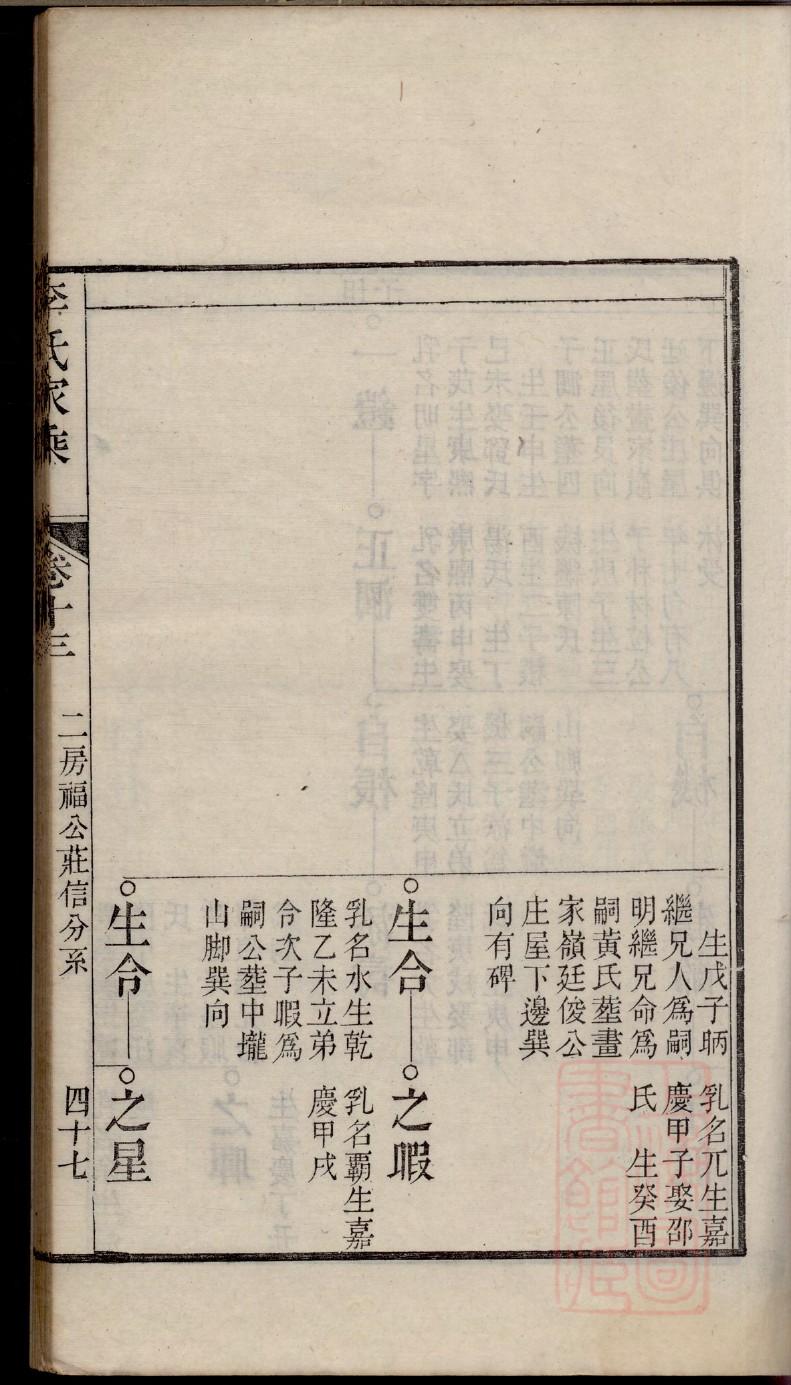 生戊子昞
繼兄人爲嗣
明繼兄命爲
嗣黃氏塟畫
家嶺廷俊公
庄屋下邊巽
向有碑
乳名兀生嘉
慶甲子娶邵
氏 生癸酉
生合
乳名水生乾
隆乙未立弟
令次子暇爲
嗣公塟中壠
山脚巽向
之暇
乳名霸生嘉
慶甲戌
生令
之星
李氏家乘
卷十三
二房福公莊信分系
四十七